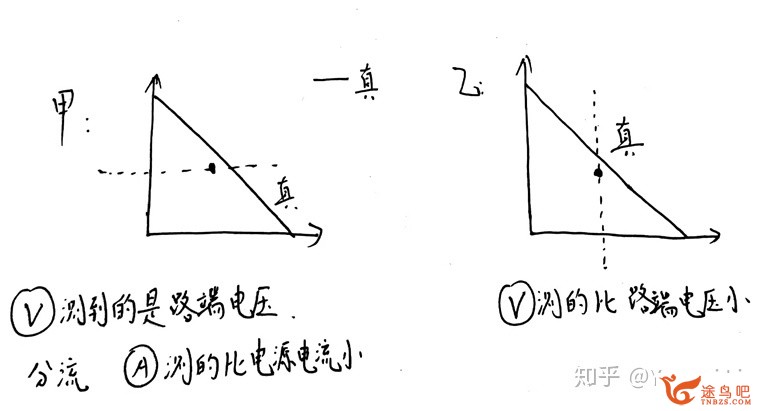 甲:
一真
真
Ⓥ测到的是路端电压.
分流 Ⓐ测的比电源电流小
乙:
真
Ⓥ测的比路端电压小
知乎 @Y
途鸟吧
TNBZS.COM